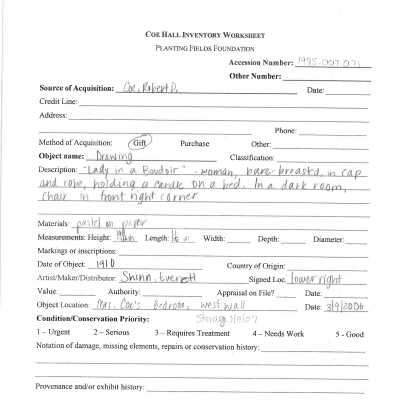 COE HALL INVENTORY WORKSHEET
PLANTING FIELDS FOUNDATION
Accession Number: 1985.007.071
Other Number:
Source of Acquisition: Coe, Robert D. Date:
Credit Line:
Address:
Phone:
Method of Acquisition: Gift Purchase Other:
Object name: Drawing Classification:
Description: "Lady in a Boudoir" - woman, bare breasted, in cap
and robe, holding a candle on a bed. In a dark room,
chair in front right corner
Materials: pastel on paper
Measurements: Height: Length: Width: Depth: Diameter:
Markings or inscriptions:
Date of Object: 1910 Country of Origin:
Artist/Maker/Distributor: Shinn, Everett Signed Loc. lower right
Value: Authority: Appraisal on File? Date:
Object Location: Mrs. Coe's Bedroom, west wall Date: 3/9/2006
Condition/Conservation Priority: Storage
1 – Urgent 2 – Serious 3 – Requires Treatment 4 – Needs Work 5 - Good
Notation of damage, missing elements, repairs or conservation history:
Provenance and/or exhibit history: